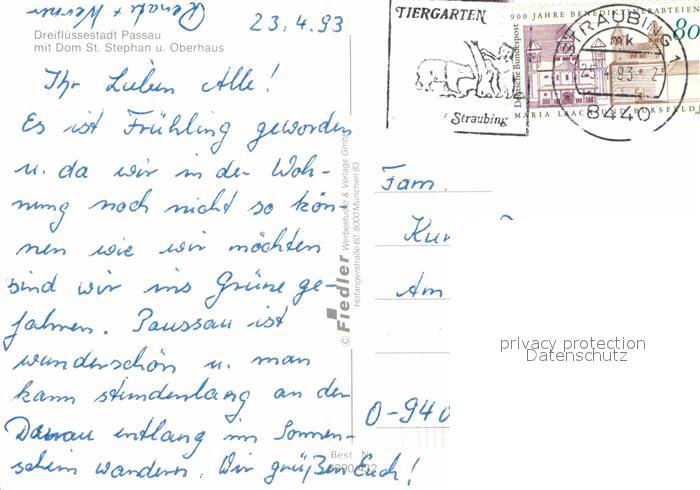 Renate + Werner
23.4.93
Dreiflüssestadt Passau
mit Dom St. Stephan u. Oberhaus
Ihr Lieben Alle!
Es ist Frühling geworden
u. da wir in der Woh-
nung noch nicht so kön-
nen wie wir möchten
sind wir ins Grüne ge-
fahren. Paussau ist
wunderschön u. man
kann stundenlang an der
Donau entlang im Sonnen-
schein wandern. Wir grüßen Euch!
© Fiedler Werbestudio & Verlags GmbH
Hofangerstraße 60, 8000 München 83
Best. N
TIERGARTEN
Straubing
900 JAHRE BENEDIKTINERABTEIEN
80
Deutsche Bundespost
MARIA LAACH
STRAUBING 1
mk
93
8440
Fam.
Am
O-940
privacy protection
Datenschutz